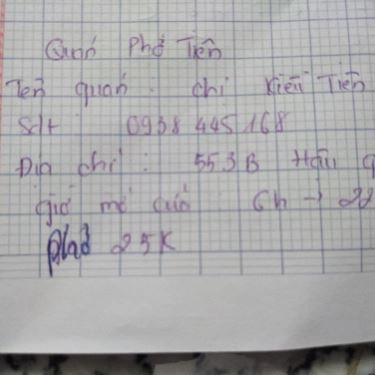 Quán Phở Tiên
Tên quán : chị Kiều Tiên
Sdt 0938 445 168
Địa chỉ : 553B Hậu G
giờ mở cửa 6h → 22
phở 25K